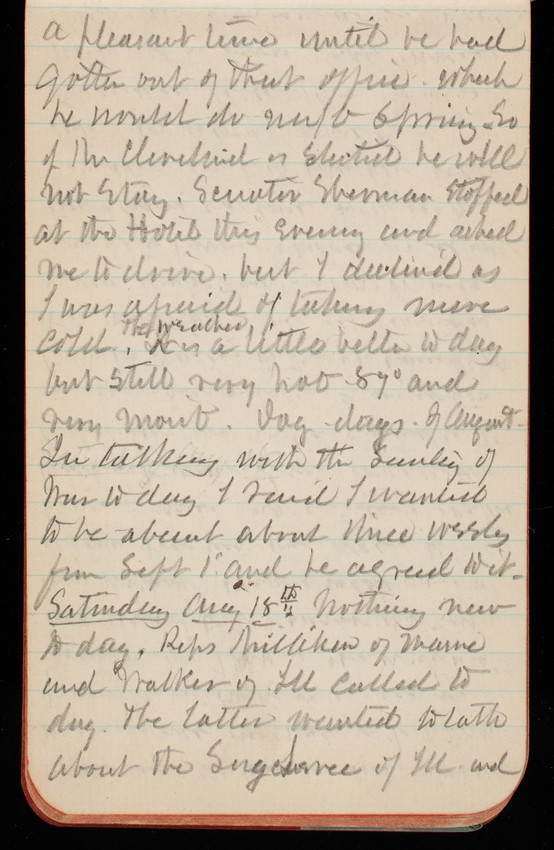 a pleasant time until he had
gotten out of that office. which
he would do next Spring. So
if Mr Cleveland is Elected he will
not Stay. Senator Sherman Stopped
at the Hotel this Evening and asked
me to drive. but I declined as
I was afraid of taking more
cold. The weather is a little better to day
but still very hot 87° and
very moist. Dog days of August.
In talking with the Secretary of
War to day I said I wanted
to be absent about three weeks
from Sept 1st and he agreed to it.
Saturday Aug 18th Nothing new
to day. Reps Milliken of Maine
and Walker of Ill called to
day. The latter wanted to talk
about the of Ill and